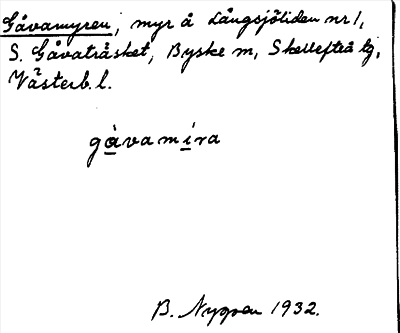 Gåvamyren, myr å Långsjöliden nr 1,
S. Gåvaträsket, Byske sn, Skellefteå tg,
Västerb. l.
gåvamira
B. Nygren 1932.